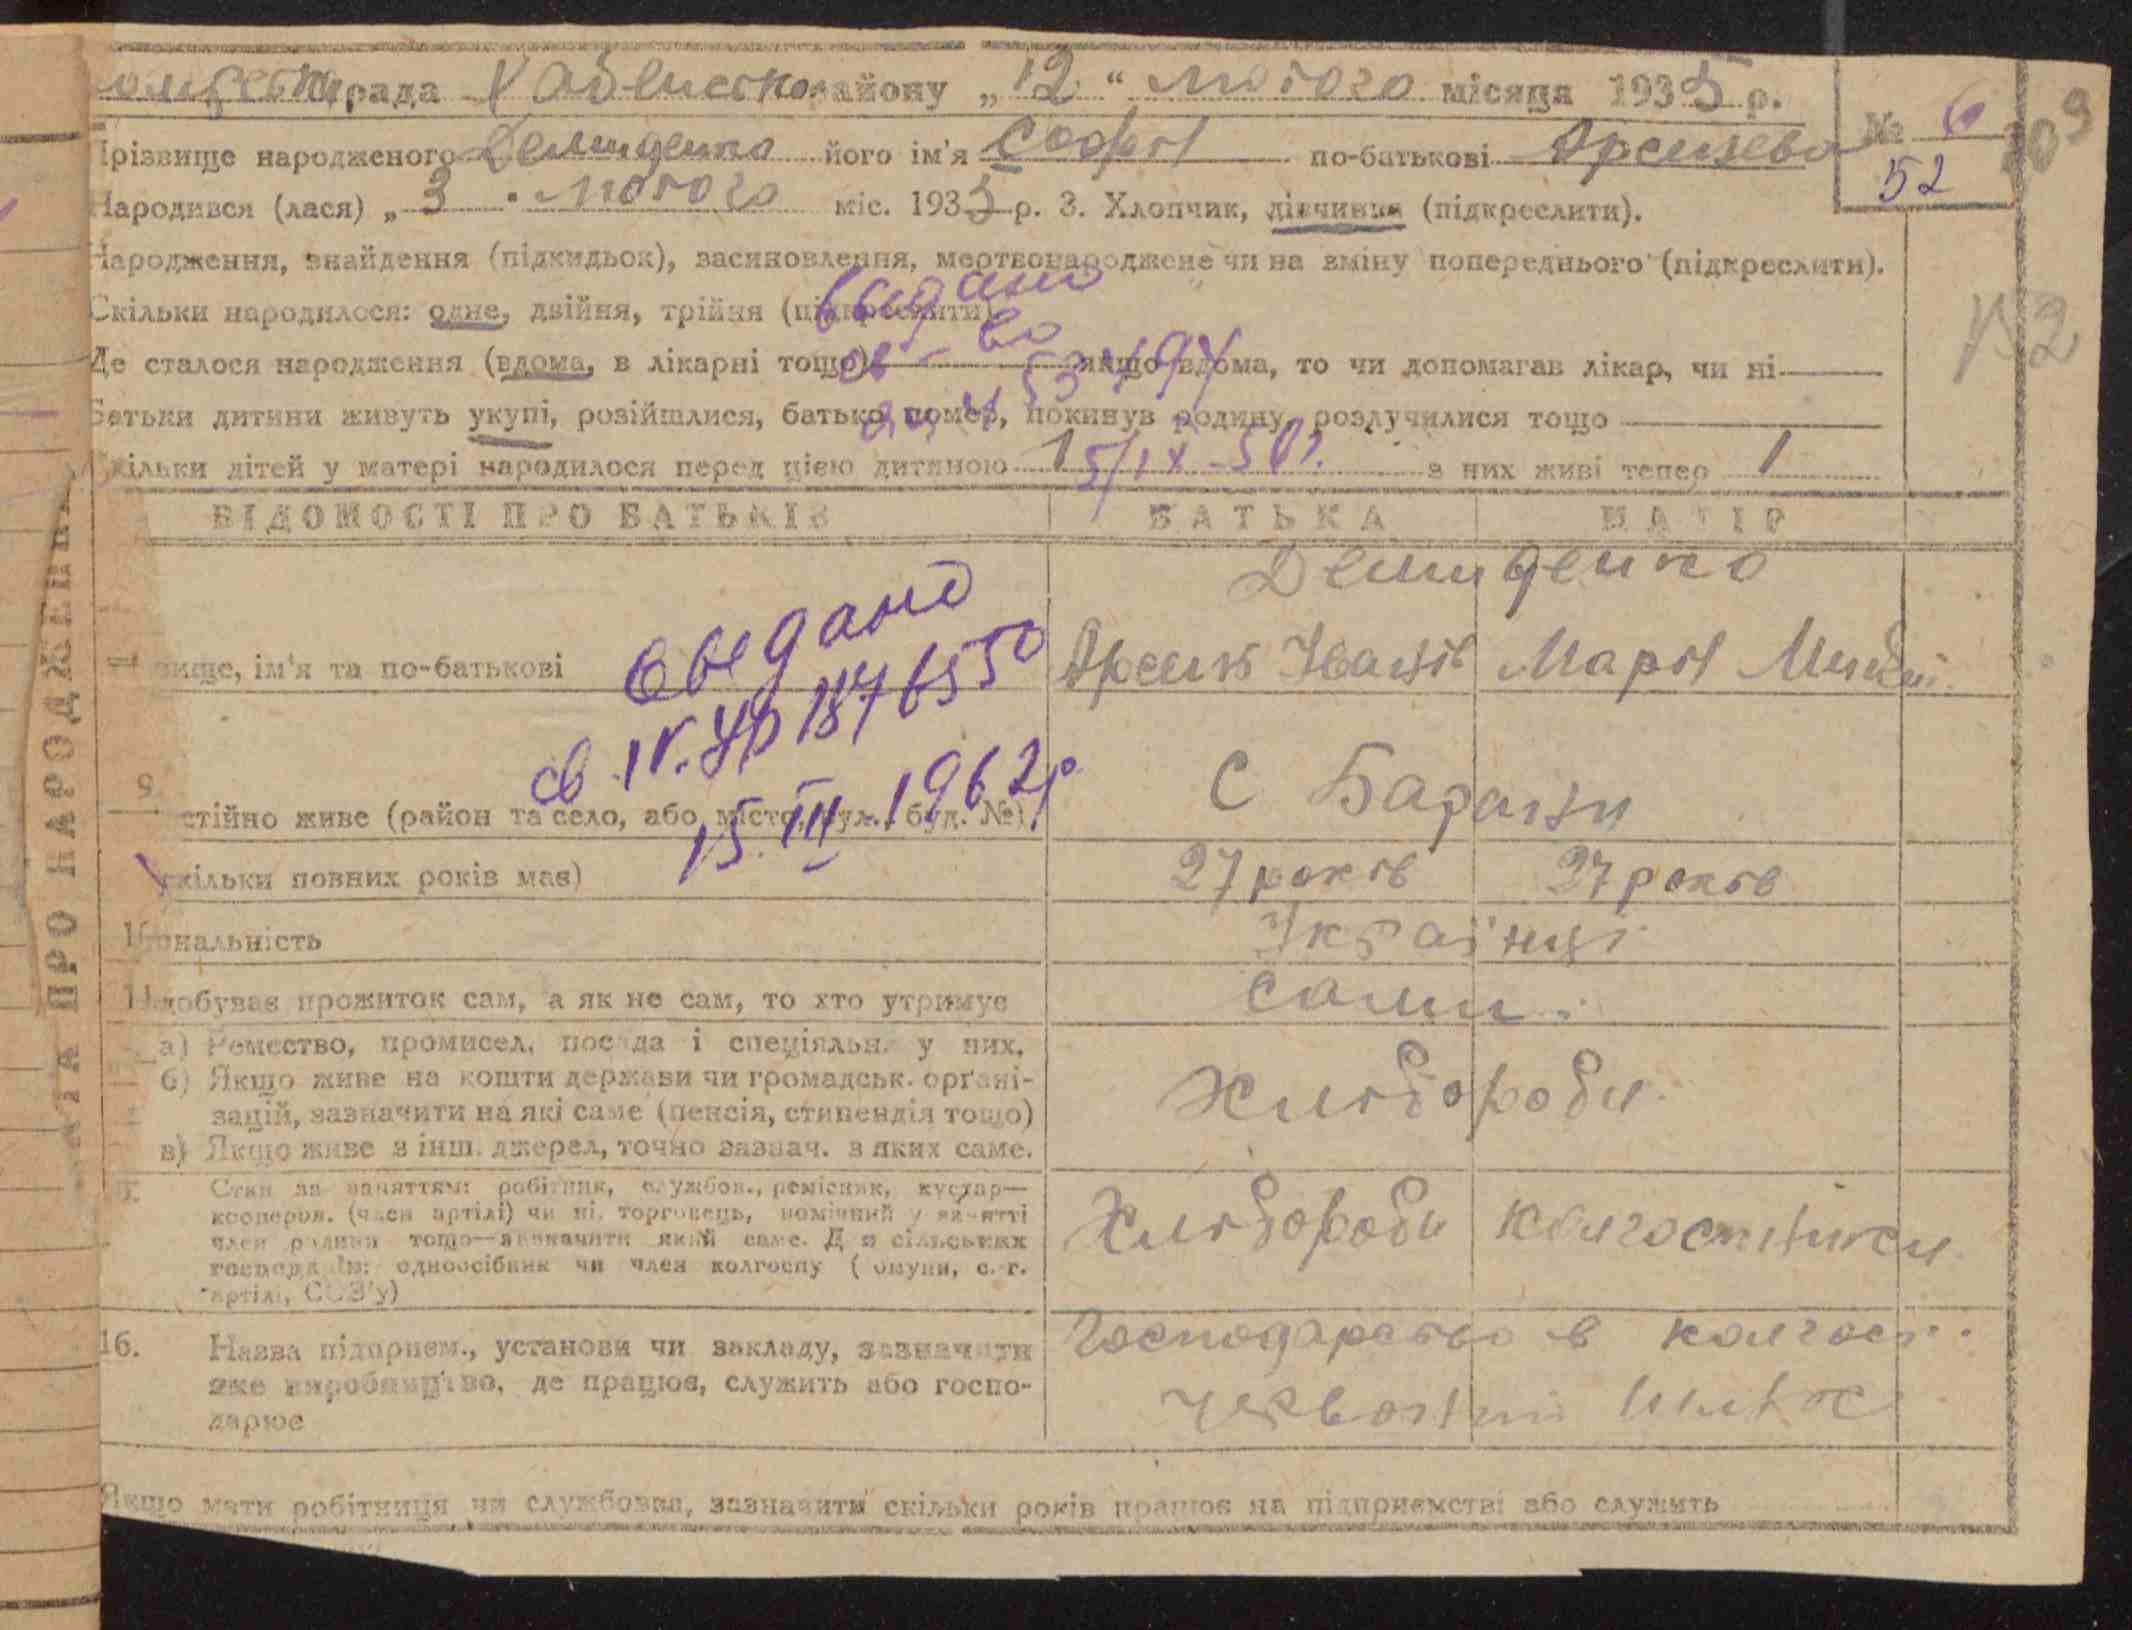 рада Кабиского району „12“ лютого місяця 1935 р.
№ 6
109
Прізвище народженого Демиденко його ім'я Софія по-батькові Арсенева
52
Народився (лася) „3 лютого міс. 1935 р. 3. Хлопчик, дівчинка (підкреслити).
Народження, знайдення (підкидьок), засиновлення, мертвонароджене чи на зміну попереднього (підкреслити).
Скільки народилося: одне, двійня, трійня (підкреслити)
выдано
152
Де сталося народження (вдома, в лікарні тощо) якщо вдома, то чи допомагав лікар, чи ні
Батьки дитини живуть укупі, розійшлися, батько помер, покинув родину, розлучилися тощо
Скільки дітей у матері народилося перед цією дитиною 1 з них живі тепер 1
5/IX-50г.
ВІДОМОСТІ ПРО БАТЬКІВ БАТЬКА МАТІР
Демиденко
вище, ім'я та по-батькові Арсень Іванів Марія
выдано
св IV. УР 1876550
15.III.1962р
9.
стійно живе (район та село, або місто, вул., буд. №) С
скільки повних років має) 27 років 27 років
національність Українці
добуває прожиток сам, а як не сам, то хто утримує сами.
а) Ремество, промисел, посада і спеціяльн. у них.
б) Якщо живе на кошти держави чи громадськ. орґані-
зацій, зазначити на які саме (пенсія, стипендія тощо)
в) Якщо живе з інш. джерел, точно зазнач. з яких саме.
Хлібороби
Стан за заняттям: робітник, службов., ремісник, кустар—
кооперов. (член артілі) чи ні, торговець, помічний у занятті
член родини тощо—зазначити який саме. Для сільських
господарів: одноосібник чи член колгоспу (комуни, с.-г.
артілі, СОЗ'у)
Хлібороби колгоспники
16. Назва підприєм., установи чи закладу, зазначити
яке виробництво, де працює, служить або госпо-
дарює
Господарство в колгосп.
червоний шлях
Якщо мати робітниця чи службовка, зазначити скільки років працює на підприємстві або служить
АКТА ПРО НАРОДЖЕННЯ